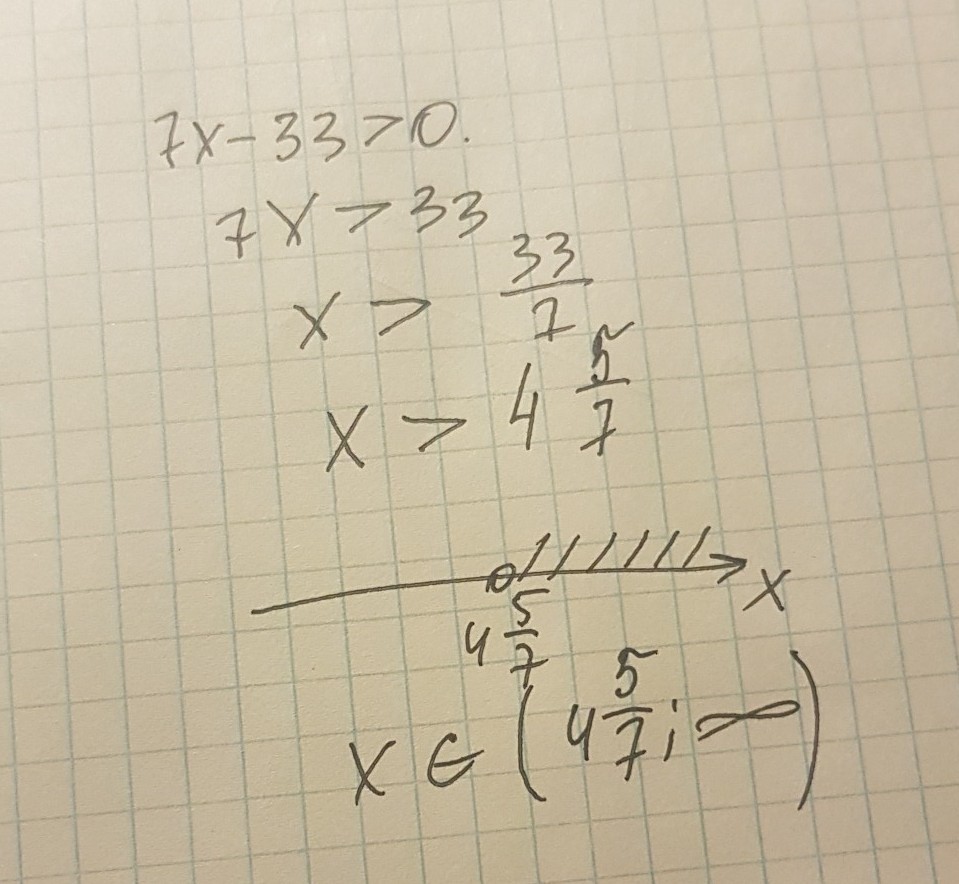 7x-33>0.
7x>33
x > 33/7
x > 4 5/7
x
4 5/7
x ∈ (4 5/7; ∞)